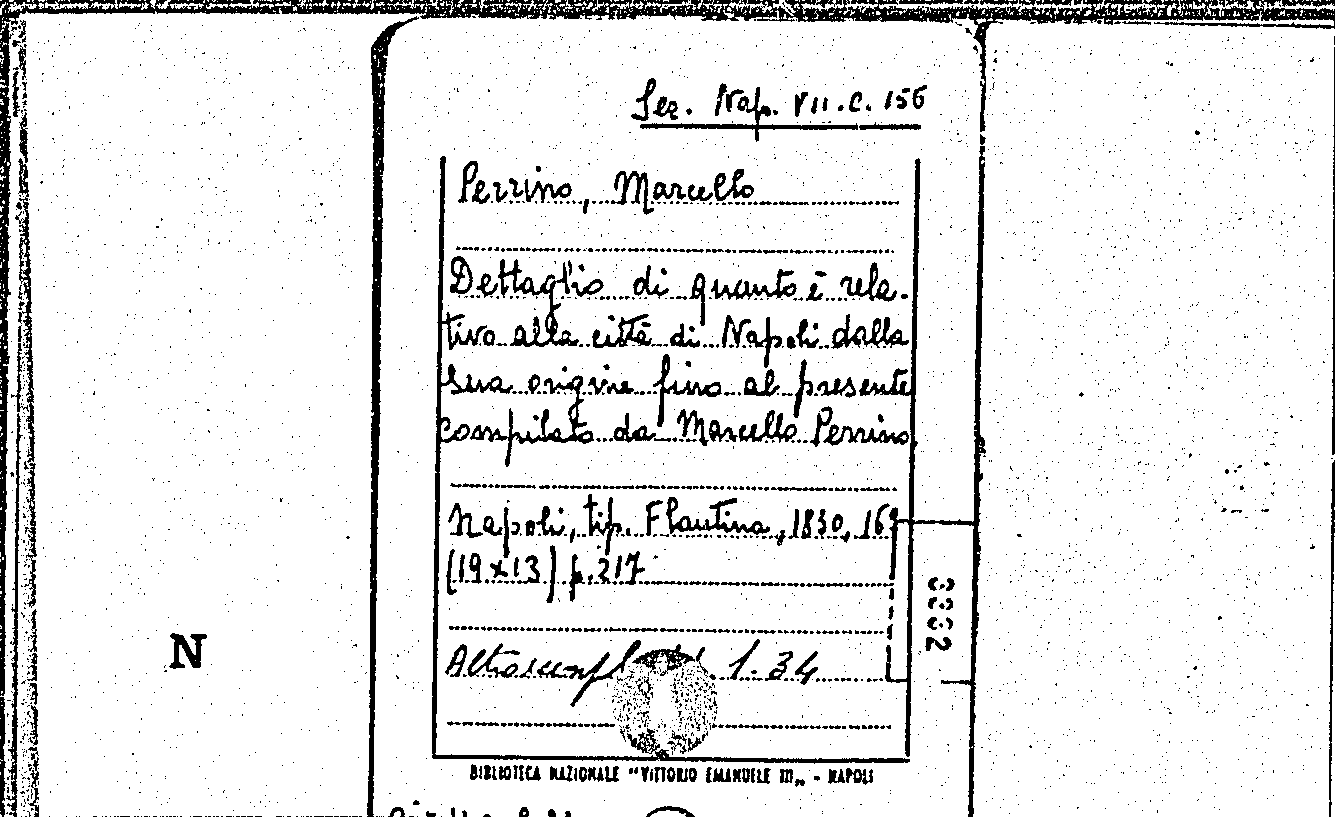 Sez. Nap. VII.C. 156
Perrino, Marcello
Dettaglio di quanto è rela-
tivo alla città di Napoli dalla
sua origine fino al presente
compilato da Marcello Perrino
Napoli, tip. Flautina, 1830, 16º
(19x13) p. 217
1.34
N
BIBLIOTECA NAZIONALE "VITTORIO EMANUELE III„ - NAPOLI